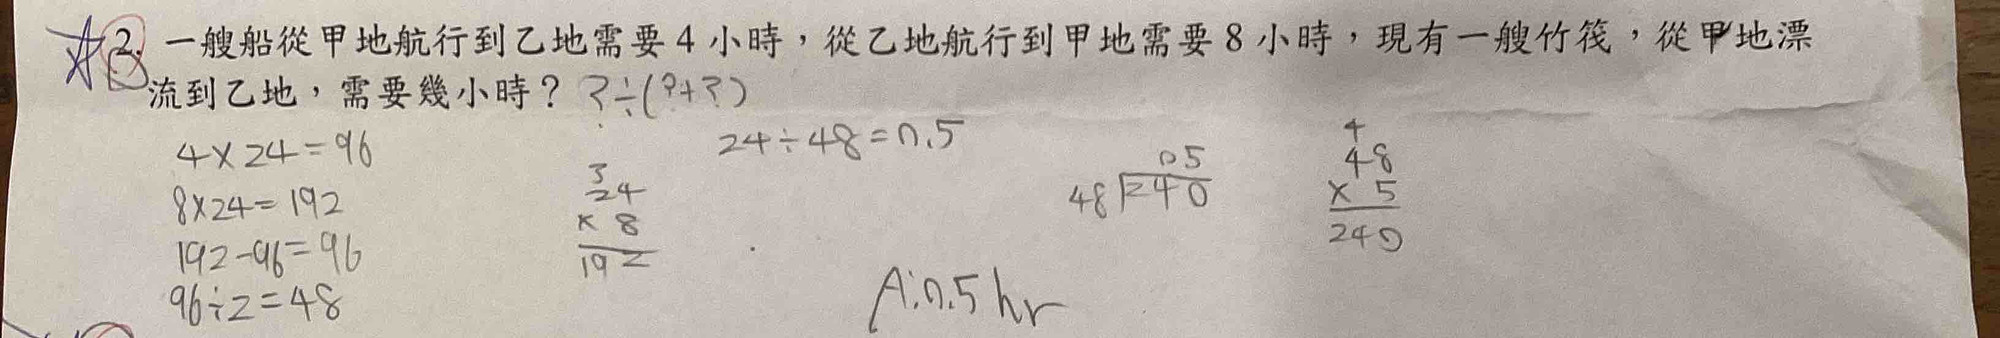 2. 一艘船從甲地航行到乙地需要 4 小時，從乙地航行到甲地需要 8 小時，現有一艘竹筏，從甲地漂
流到乙地，需要幾小時？ ?÷(?+?)
4×24=96
8×24=192
192-96=96
96÷2=48
3
24
× 8
192
24÷48=0.5
05
48 240
4
48
× 5
240
A:0.5hr